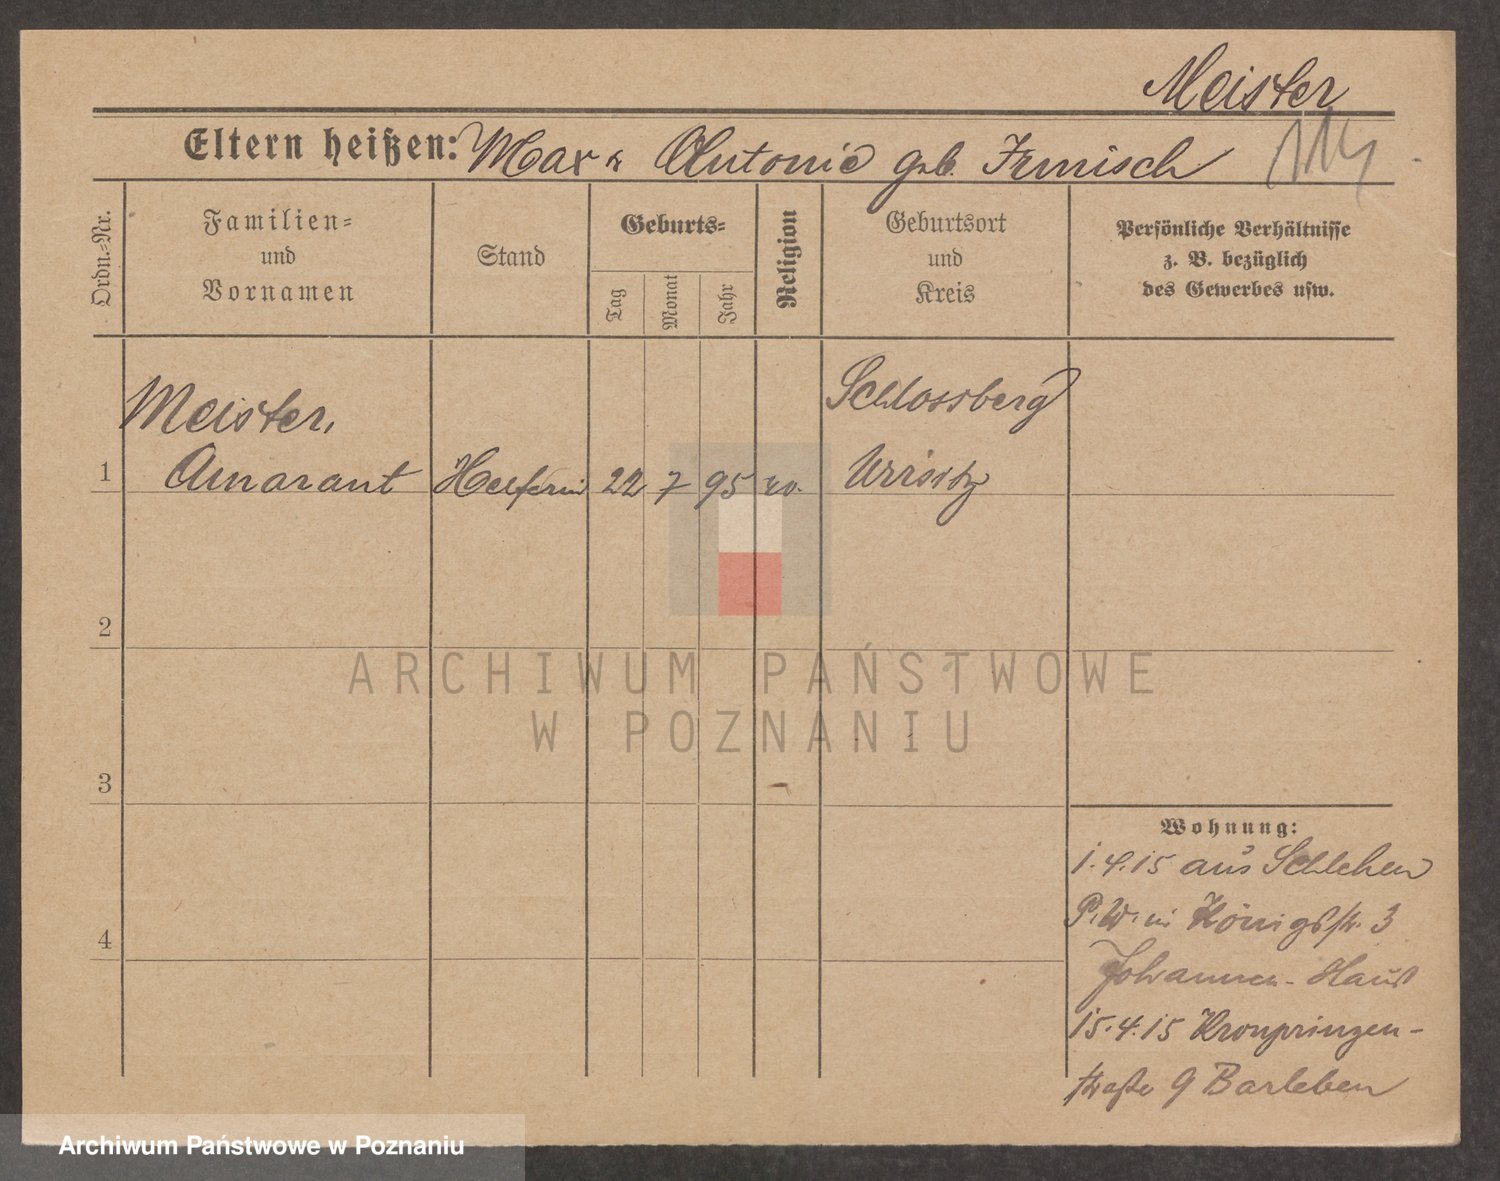 Meister
Eltern heißen: Max & Antonie geb. Irmisch
Ordn.-Nr.
Familien-
und
Vornamen
Stand
Geburts-
Tag
Monat
Jahr
Religion
Geburtsort
und
Kreis
Persönliche Verhältnisse
z. B. bezüglich
des Gewerbes usw.
Meister,
Schlossberg
1 Amarant Helferin 22 7 95 ev. Wirsitz
2
ARCHIWUM PAŃSTWOWE
W POZNANIU
3
4
Wohnung:
1.4.15 aus Schlehen
P. W. in Königsstr. 3
Johannen-Haus
15.4.15 Kronprinzen-
straße 9 Barleben
Archiwum Państwowe w Poznaniu